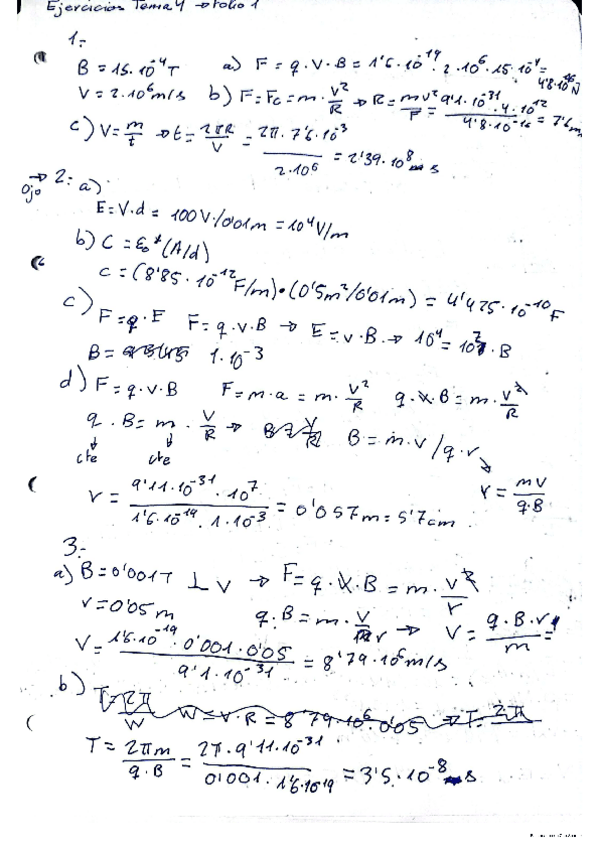 Ejercicios Tema 4 → Folio 1
1:-
B = 15·10⁻⁴ T   a) F = q·V·B = 1'6·10⁻¹⁹·2·10⁶·15·10⁻⁴ = 4'8·10⁻¹⁶ N
V = 2·10⁶ m/s   b) F = Fc = m·V²/R → R = mv²/F = 9'1·10⁻³¹·4·10¹²/4'8·10⁻¹⁶ = 7'6 m
c) V = m/t → t = 2πR/V = 2π·7'6·10⁻³/2·10⁶ = 2'39·10⁸ s
→ Ojo 2: a)
E = V·d = 100V·/0'01m = 10⁴ V/m
b) C = ε₀*(A/d)
C = (8'85·10⁻¹² F/m)•(0'5m²/0'01m) = 4'425·10⁻¹⁰ F
c) F = q·E   F = q·v·B → E = v·B → 10⁴ = 10⁷·B
B = 1·10⁻³
d) F = q·v·B   F = m·a = m·V²/R   q·v·B = m·V²/R
q·B = m·V/R →   B = m·v/q·r
cte   cte   r = mv/q·B
r = 9'11·10⁻³¹·10⁷/1'6·10⁻¹⁹·1·10⁻³ = 0'057m = 5'7cm
3:-
a) B = 0'001T ⊥ v → F = q·v·B = m·v²/r
r = 0'05 m   q·B = m·v/r → V = q·B·r/m =
V = 1'6·10⁻¹⁹·0'001·0'05/9'1·10⁻³¹ = 8'79·10⁶ m/s
b) T = 2π/W   W = V·R = 8'79·10⁶·0'05 → T = 2π
T = 2πm/q·B = 2π·9'11·10⁻³¹/0'001·1'6·10⁻¹⁹ = 3'5·10⁻⁸ s